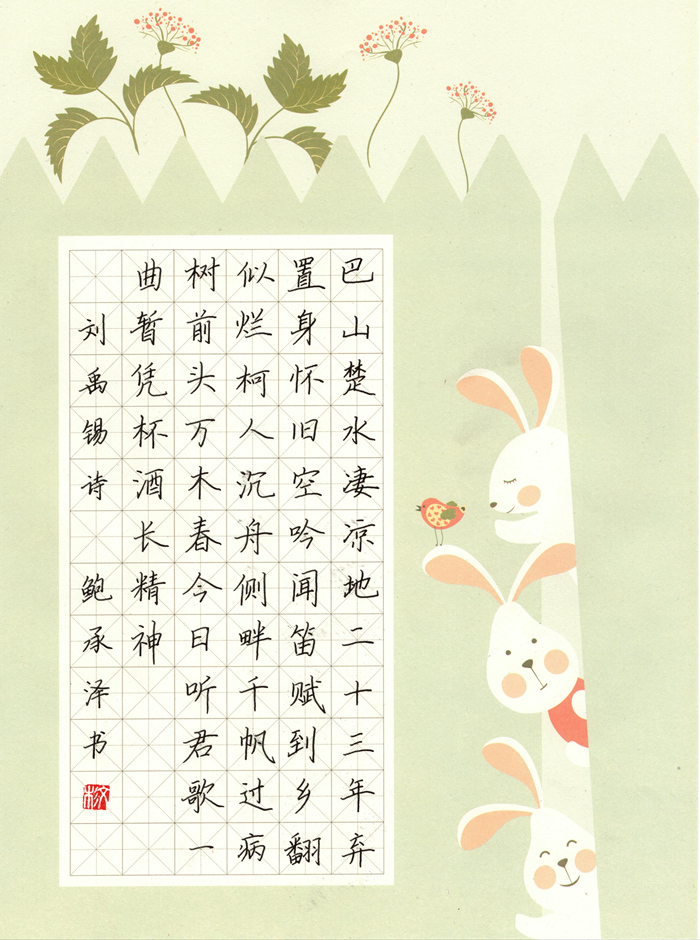 巴山楚水凄凉地二十三年弃
置身怀旧空吟闻笛赋到乡翻
似烂柯人沉舟侧畔千帆过病
树前头万木春今日听君歌一
曲暂凭杯酒长精神
刘禹锡诗 鲍承泽书